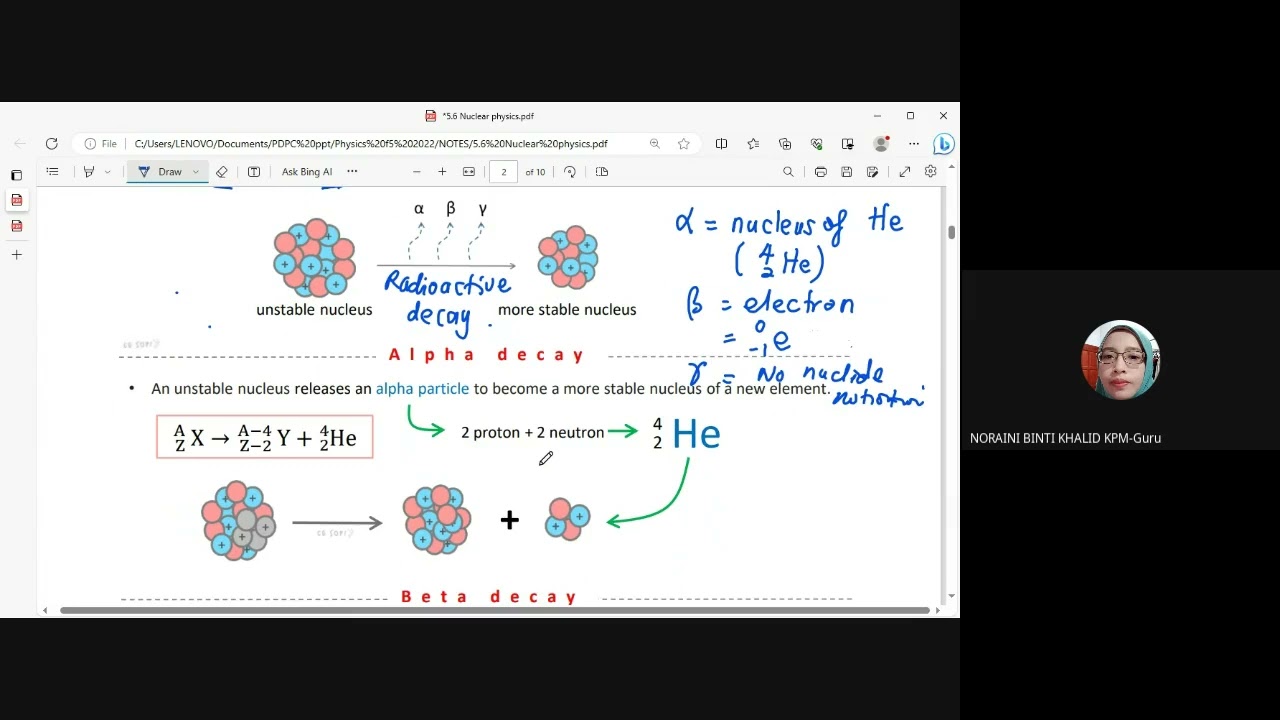 *5.6 Nuclear physics.pdf
File C:/Users/LENOVO/Documents/PDPC%20ppt/Physics%20f5%202022/NOTES/5.6%20Nuclear%20physics.pdf
Draw Ask Bing AI 2 of 10
α β γ
unstable nucleus
Radioactive
decay
more stable nucleus
α = nucleus of He
(⁴₂He)
β = electron
= ⁰₋₁e
γ = No nuclide
Alpha decay
• An unstable nucleus releases an alpha particle to become a more stable nucleus of a new element.
ᴬ_Z X → ᴬ⁻⁴_Z₋₂ Y + ⁴₂He
2 proton + 2 neutron
⁴₂He
+
Beta decay
NORAINI BINTI KHALID KPM-Guru